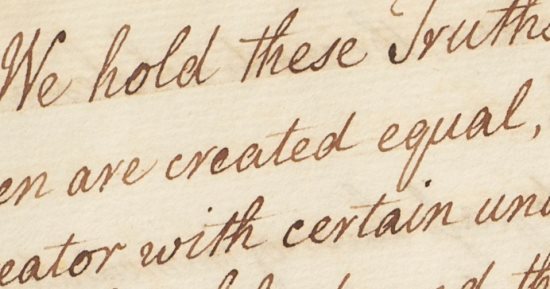 We hold these Truths
en are created equal,
eator with certain una